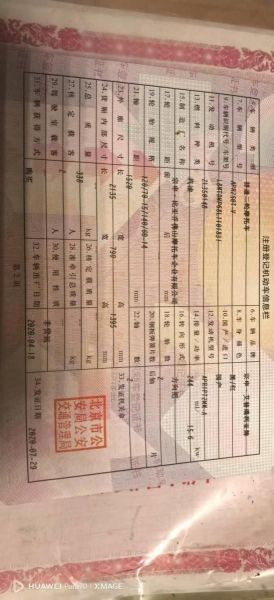 注册登记机动车信息栏
5.车辆类型 普通二轮摩托车 6.车辆品牌 宗申·艾普瑞利亚牌
7.车辆型号 8.车身颜色 黑/红
9.车辆识别代号/车架号 10.国产/进口 国产
11.发动机号 12.发动机型号
13.燃料种类 汽油 14.排量/功率 244 ml 15.6 kw
15.制造厂名称 宗申·比亚乔佛山摩托车企业有限公司 16.转向形式 方向把
17.轮距 前 后 mm 18.轮胎数 2
19.轮胎规格 120/70-15/140/60-14 20.钢板弹簧片数 后轴 片
21.轴距 1520 mm 22.轴数 2
23.外廓尺寸 长 2135 宽 790 高 1305 mm 33.发证机关章
24.货厢内部尺寸 长 宽 高 mm
25.总质量 330 kg 26.核定载质量 kg
北京市公
安局公安
交通管理局
27.核定载客 2 人 28.准牵引总质量 kg
29.驾驶室载客 人 30.使用性质 非营运
31.车辆获得方式 购买 32.车辆出厂日期 2020-04-18 34.发证日期 2020-07-29
第2页
HUAWEI